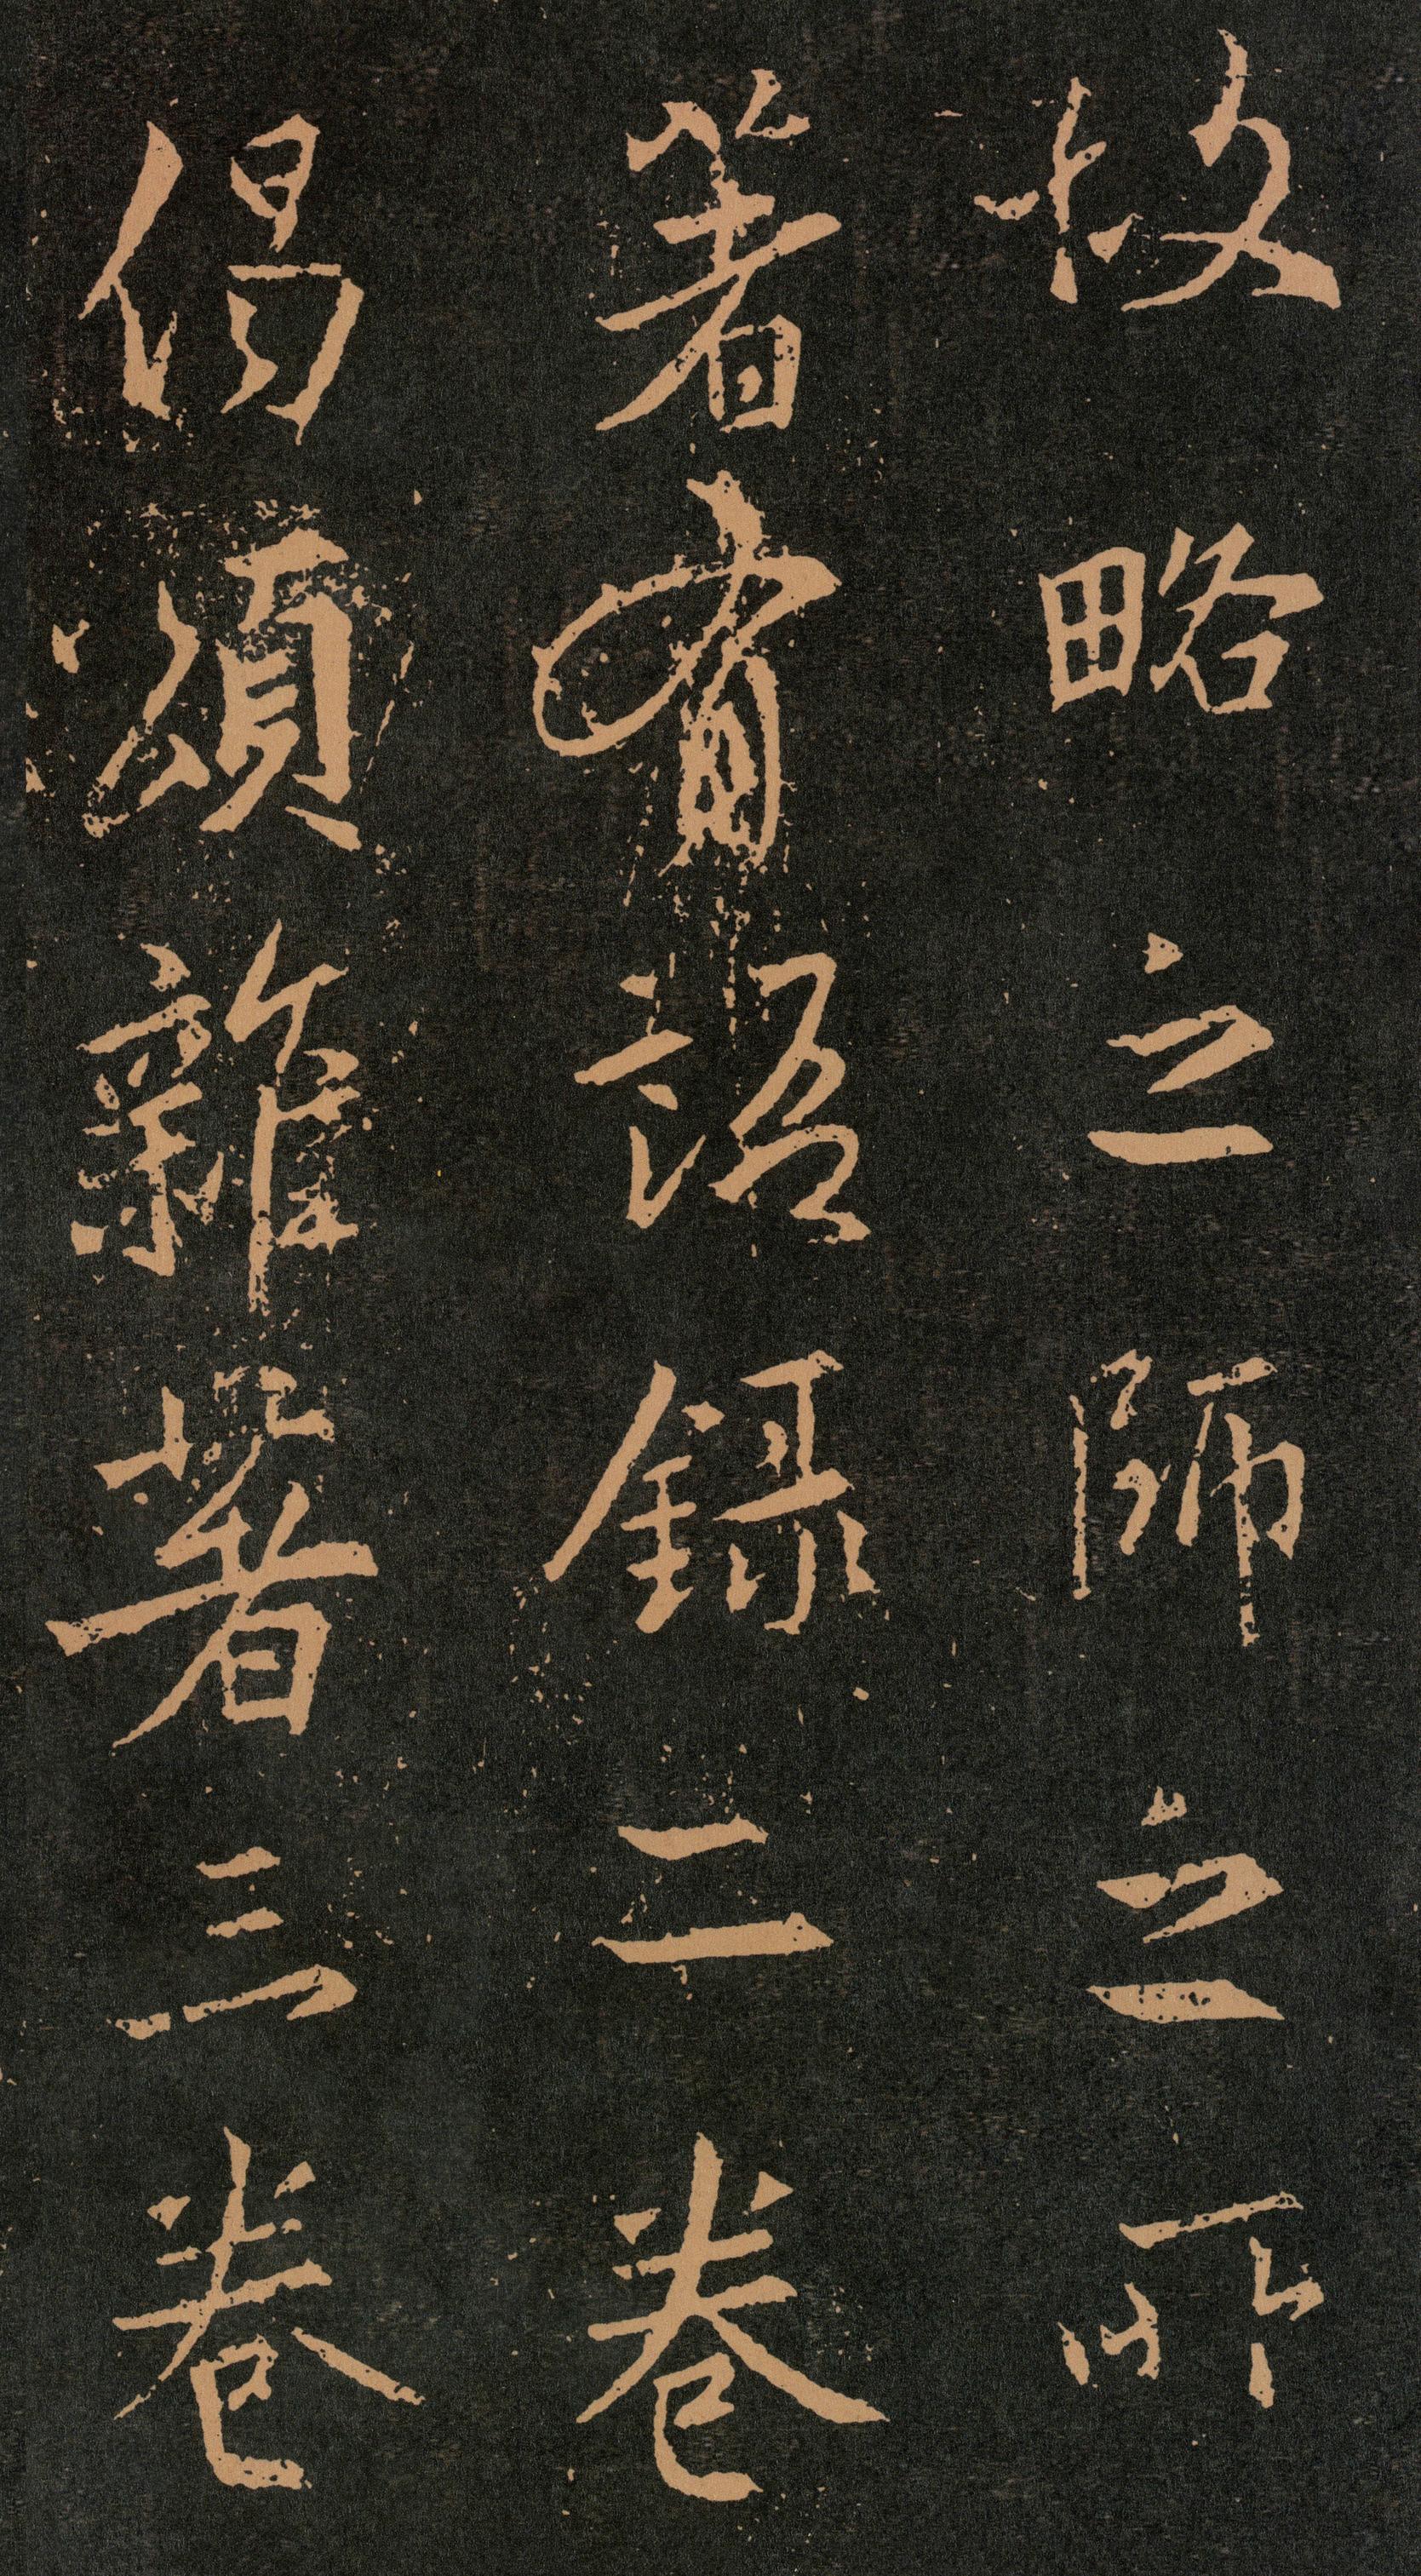 故略之師之所
著有語録二卷
偈頌雜著三卷